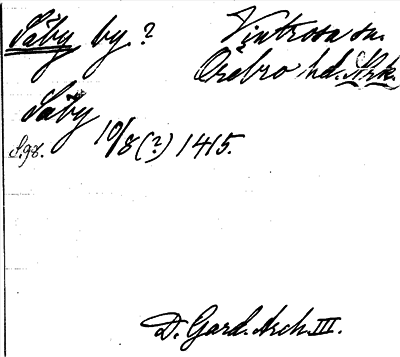 Säby by? Vintrosa sn.
Örebro hd. Nrk.
Säby
S. 98. 10/8 (?) 1415.
D. Gard. Arch. III.